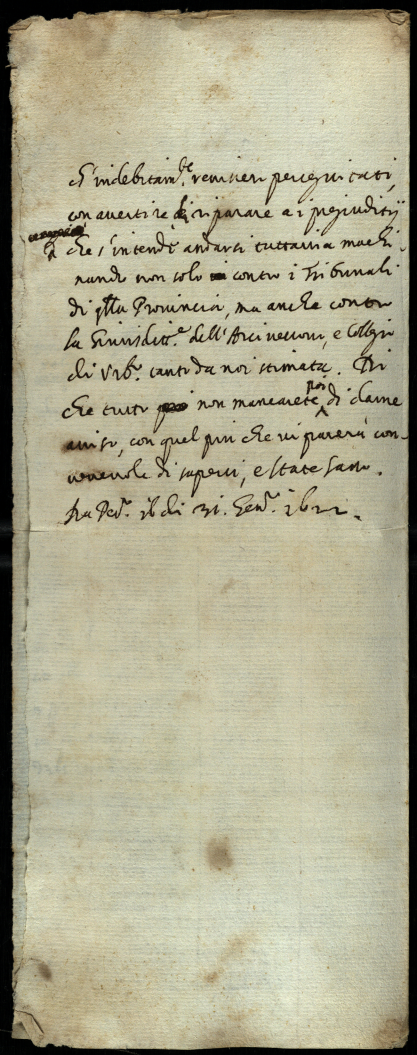 ch'indebitam.te venissero perseguitati,
con avertire di riparare a i pregiuditij
che s'intende andarsi tuttavia machi-
nando non solo contro i Tribunali
di q.lla Provincia, ma anche contro
la Giurisdit.e dell'Arcivescovo, e Collegio
di Urb.o tanto da noi stimata. Di
che tutto non mancarete poi di darne
aviso, con quel più che vi parerà con-
venevole di saperci, e state sano.
Da Pes.o li 31. Gen.o 1622.